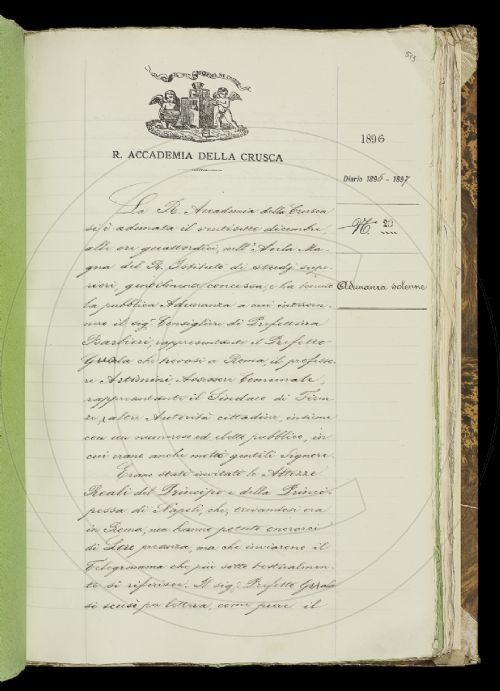 573
R. ACCADEMIA DELLA CRUSCA
1896
Diario 1896 - 1897
N. 20
Adunanza solenne
La R. Accademia della Crusca
si è adunata il ventisette dicembre,
alle ore quattordici, nell'Aula Ma-
gna del R. Istituto di studj supe-
riori, gentilmente concessa, e ha tenuto
la pubblica Adunanza a cui interven-
nero il sig. Consigliere di Prefettura
Barbieri, rappresentante il Prefetto
che trovasi a Roma, il professo-
re Artimini, Assessore Comunale,
rappresentante il Sindaco di Firen-
ze, altre Autorità cittadine, insieme
con un numeroso ed eletto pubblico, in
cui erano anche molte gentili Signore.
Erano state invitate le Altezze
Reali del Principe e della Princi-
pessa di Napoli, che, trovandosi ora
in Roma, non hanno potuto onorarci
di Loro presenza, ma che inviarono il
Telegramma che più sotto testualmen-
te si riferisce. Il sig. Prefetto
si scusò per lettera, come pure il